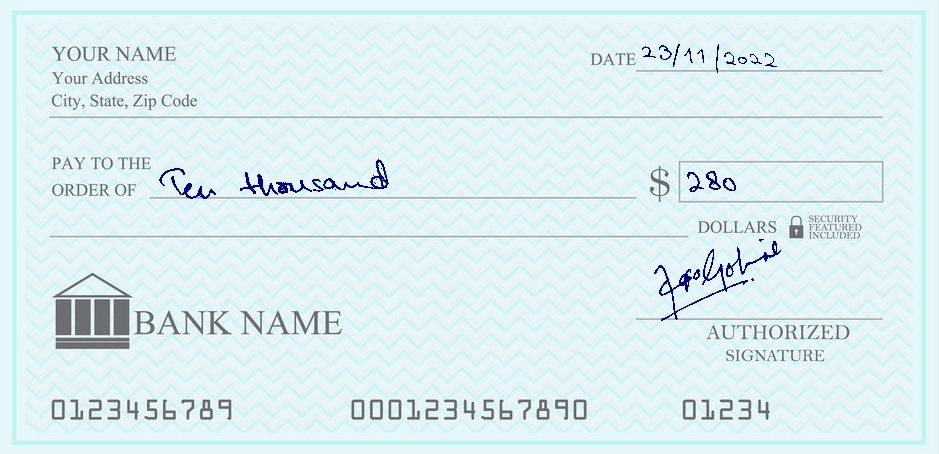 YOUR NAME
Your Address
City, State, Zip Code
DATE 23/11/2022
PAY TO THE
ORDER OF Ten thousand $ 280
DOLLARS SECURITY
FEATURED
INCLUDED
BANK NAME
AUTHORIZED
SIGNATURE
0123456789 0001234567890 01234